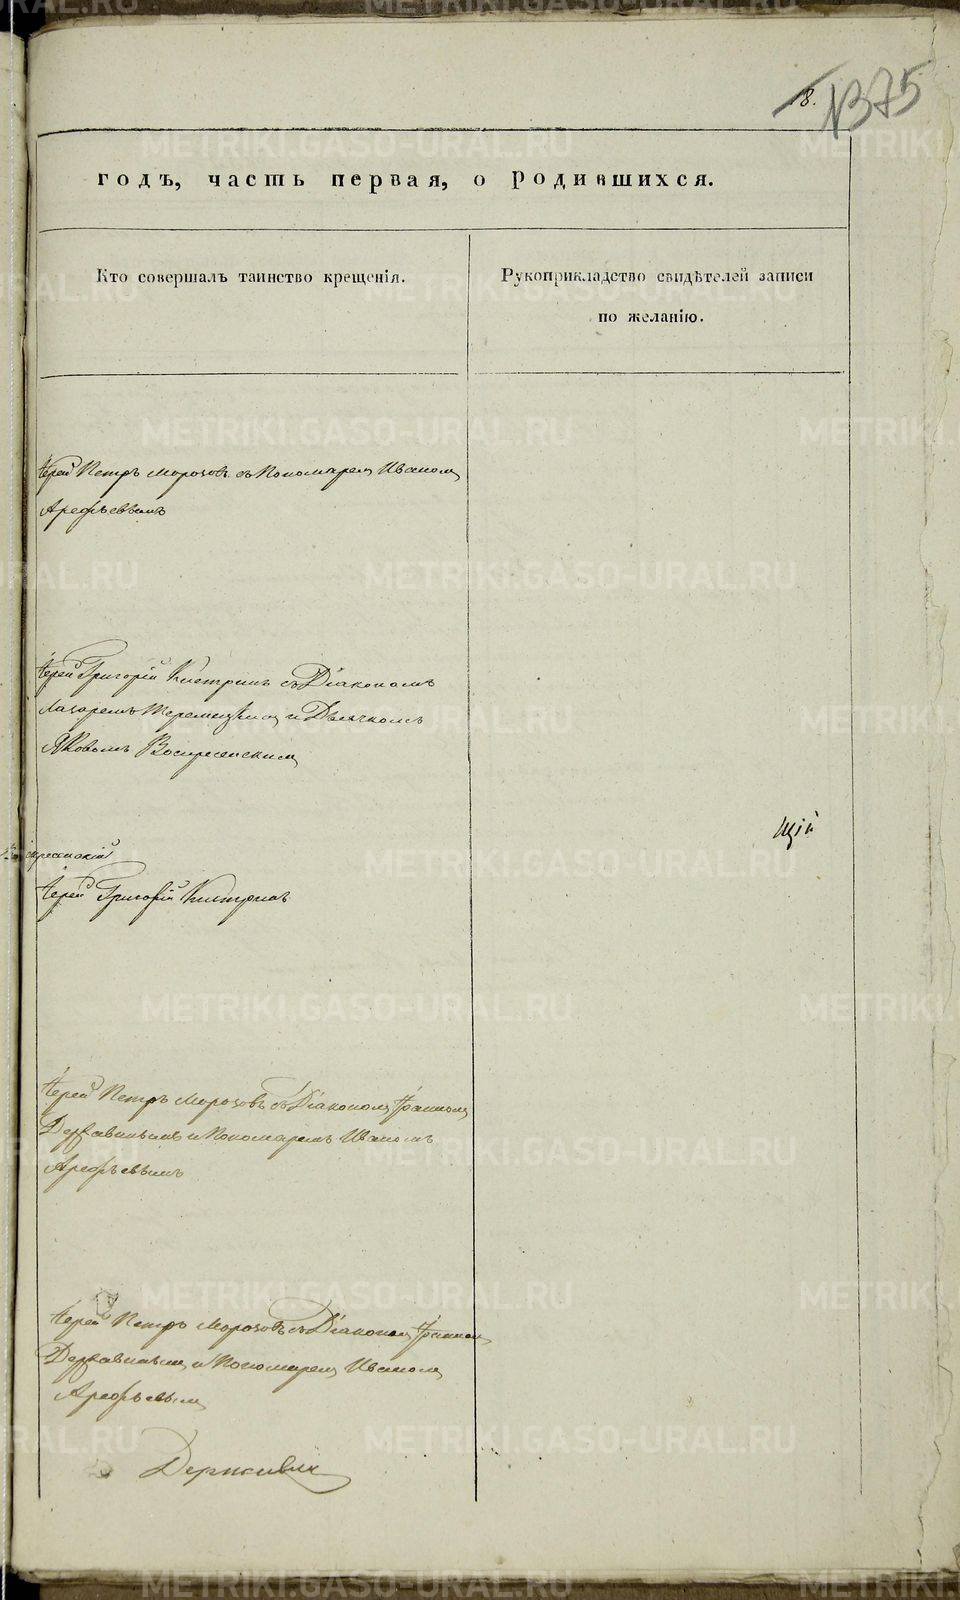 18.
№375
годъ, часть первая, о родившихся.
Кто совершалъ таинство крещенія.
Рукоприкладство свидѣтелей записи
по желанію.
Іерей Петръ Морозовъ съ Пономаремъ Иваномъ
Арефьевымъ
Іерей Григорій Кистринъ съ Діакономъ
Лазаремъ и Дьячкомъ
Яковомъ Воскресенскимъ
щій
Іерей Григорій Кистринъ
Іерей Петръ Морозовъ съ Діакономъ Іоанномъ
Державинымъ и Пономаремъ Иваномъ
Арефьевымъ
Іерей Петръ Морозовъ съ Діакономъ Іоанномъ
Державинымъ и Пономаремъ Иваномъ
Арефьевымъ
METRIKI.GASO-URAL.RU